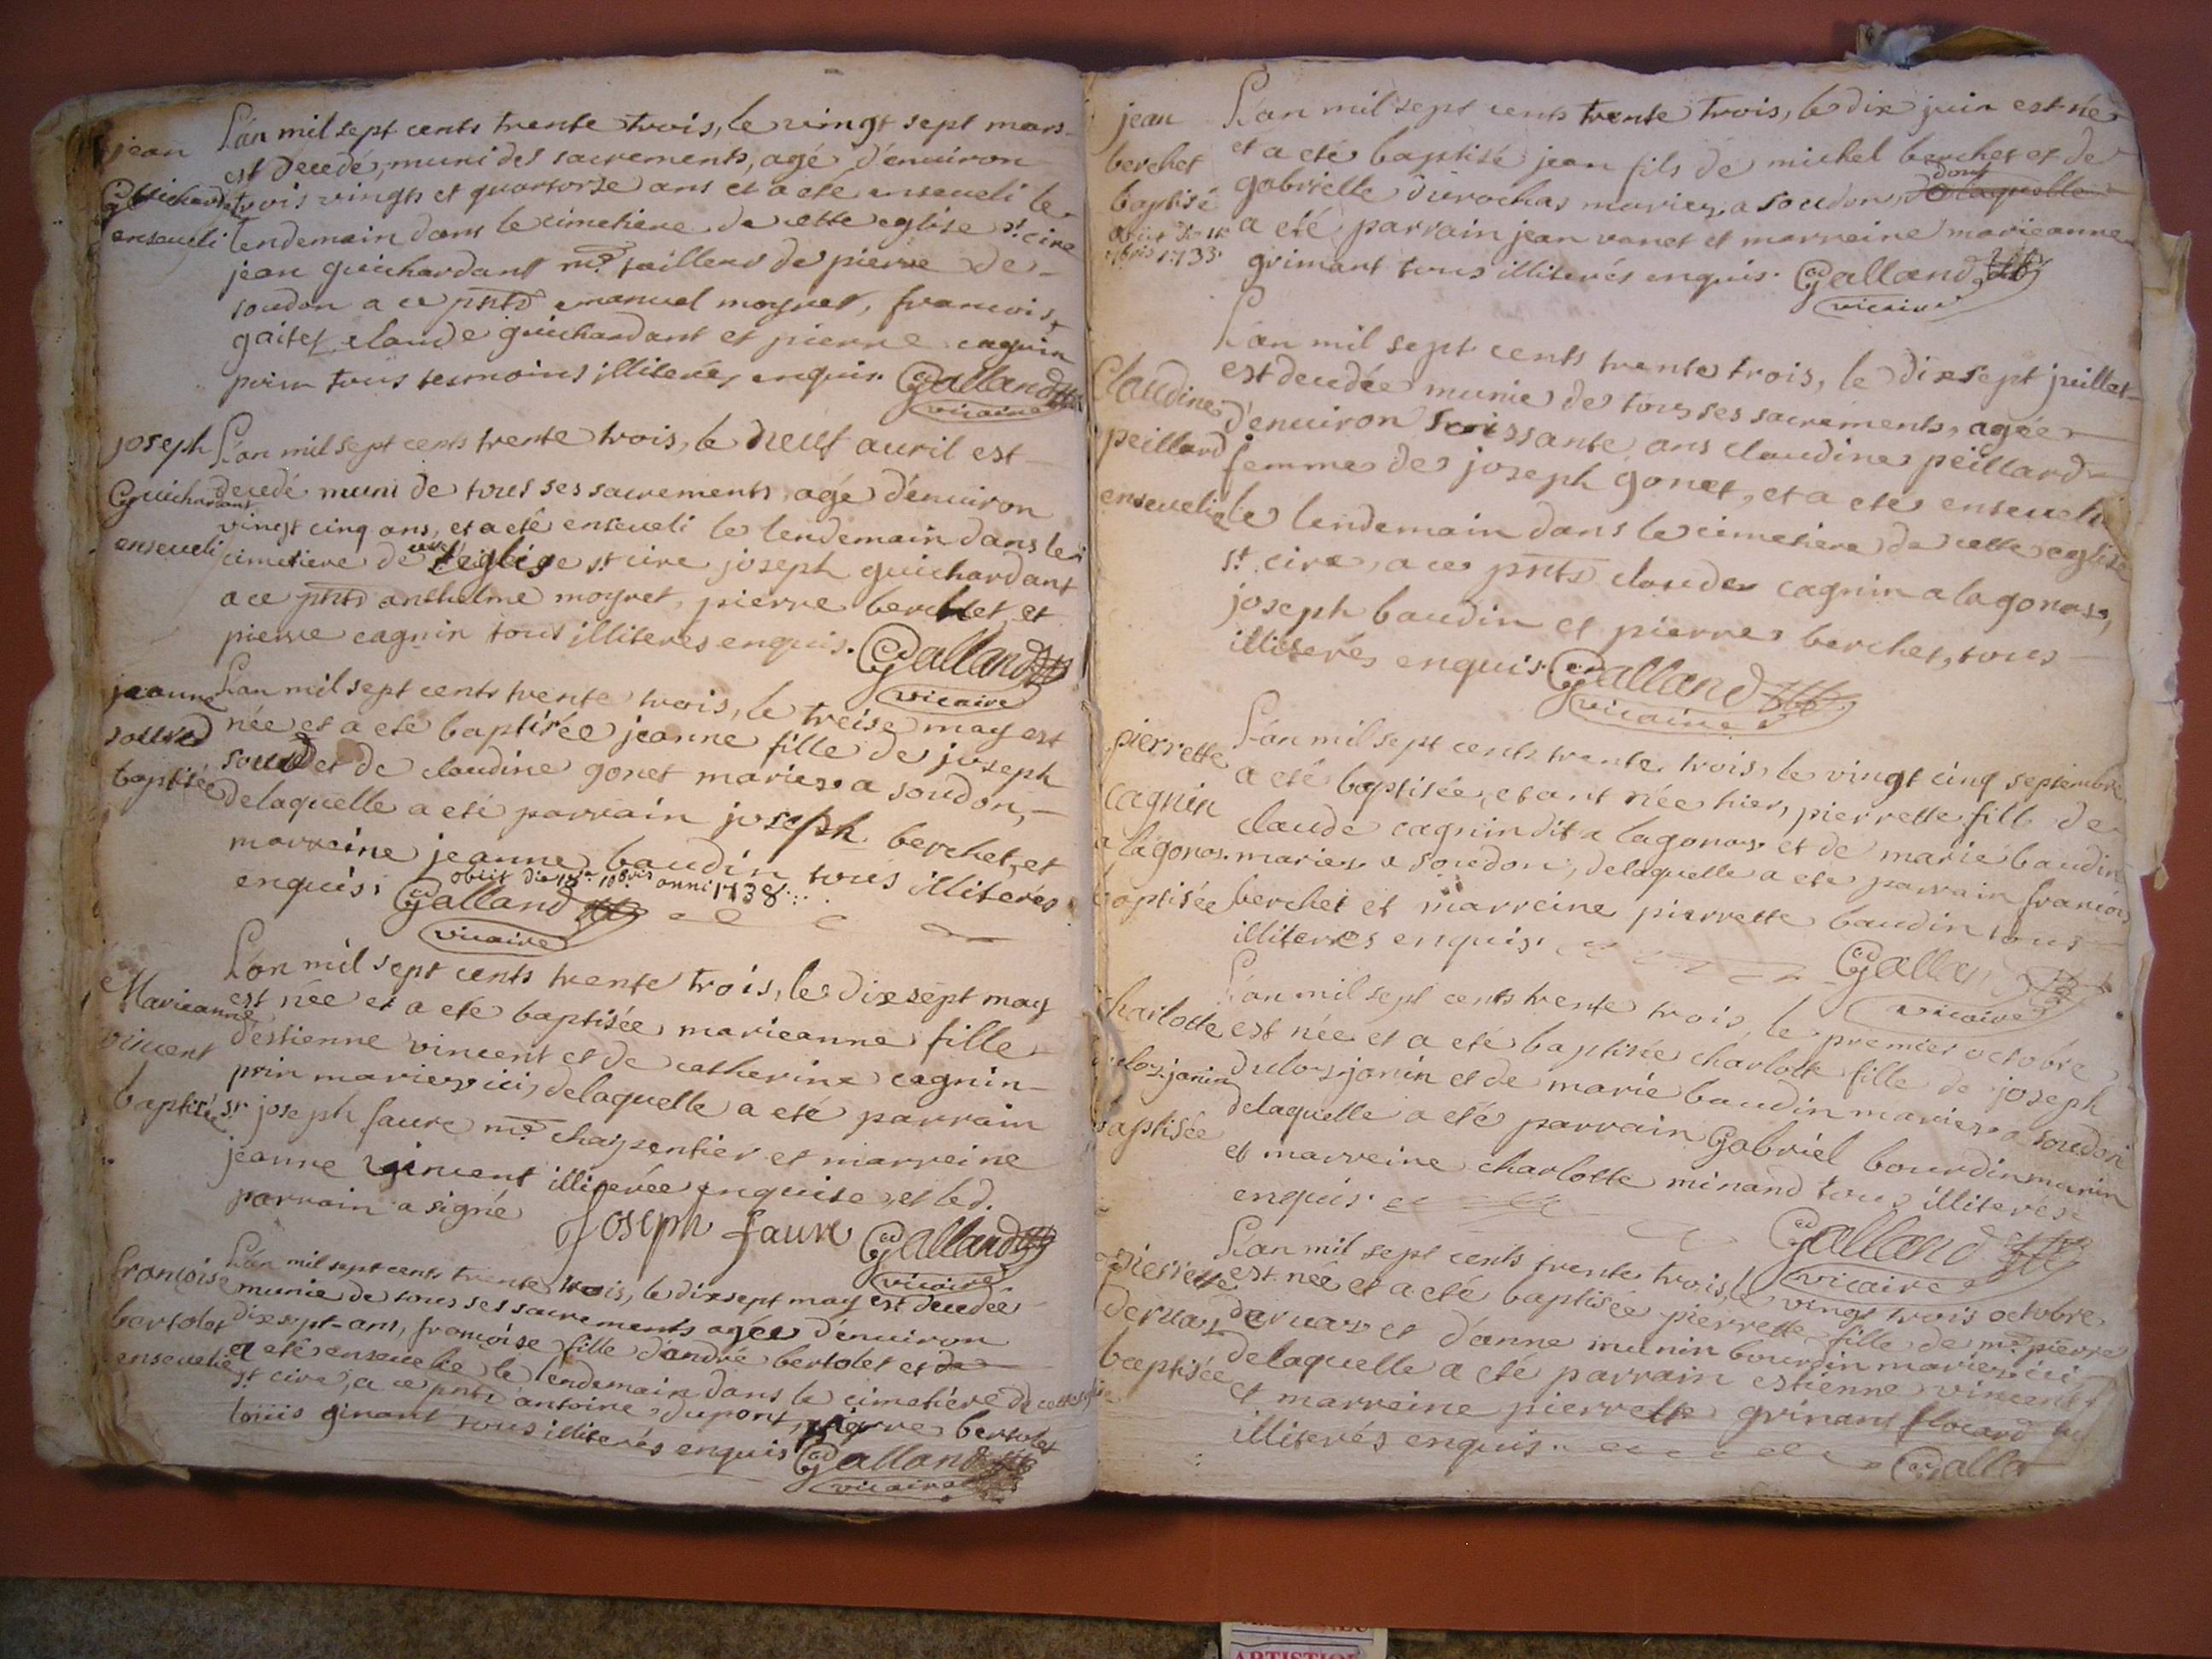 L'an mil sept cents trente trois, le vingt sept mars
jean
est decedé, muni des sacrements, agé d'enuiron
Guichardant trois vingts et quatorze ans et a eté enseueli le
enseueli lendemain dans le cimetiere de cette eglise st. cire
jean guichardant me. tailleur de pierre de
soudon a ce pnts emanuel moyret, francois
gaitet claude guichardant et pierre cagnin
prin tous tesmoins illiterés enquis. Galland
vicaire
joseph L'an mil sept cents trente trois, le neuf auril est
Guichardant decedé muni de tous ses sacrements agé d'enuiron
vingt cinq ans, et a eté enseueli le lendemain dans le
enseueli cimetiere de cette l'eglise st. cire joseph guichardant
a ce pnts anthelme moyret, pierre berchet et
pierre cagnin tous illiteres enquis. Galland
vicaire
jeanne L'an mil sept cents trente trois, le treise may est
soud née et a eté baptisée jeanne fille de joseph
baptisée soud et de claudine gonet mariez a soudon,
delaquelle a eté parrain joseph berchet, et
marreine jeanne baudin tous illiterés
obiit die 18a 10bris anni 1738
enquis. Galland
vicaire
L'an mil sept cents trente trois, le dixsept may
Marieanne est née et a eté baptisée marieanne fille
vincent d'estienne vincent et de catherine cagnin
prin mariez ici, delaquelle a eté parrain
baptisée sr joseph faure me. charpentier et marreine
jeanne vincent illiterée enquise, et led.
parrain a signé Joseph faure Galland
vicaire
francoise L'an mil sept cents trente trois, le dixsept may est decedée
munie de tous ses sacrements agée d'enuiron
bertolet dixsept ans, francoise fille d'andré bertolet et de
enseuelie a eté enseuelie le lendemain dans le cimetiére de cette eglise
st cire, a ce pnts antoine dupont, pierre bertolet
louis ginant tous illiterés enquis Galland
vicaire
jean L'an mil sept cents trente trois, le dix juin est né
berchet et a eté baptisé jean fils de michel berchet et de
dont
baptisé gabrielle durochas mariez a soudon, delaquelle
obiit die 7bris 1733. a eté parrain jean vanet et marreine marieanne
grimant tous illiterés enquis. Galland
vicaire
L'an mil sept cents trente trois, le dixsept juillet
Claudine est decedée munie de tous ses sacrements, agée
peillard d'enuiron soissante ans claudine peillard
femme de joseph gonet, et a eté enseueli
enseuelie le lendemain dans le cimetiere de cette eglise
st. cire, a ce pnts claude cagnin a lagonas,
joseph baudin et pierre berchet, tous
illiterés enquis Galland
vicaire
pierrette L'an mil sept cents trente trois, le vingt cinq septembre
a eté baptisée, etant née hier, pierrette fille de
cagnin claude cagnin dit a lagonas et de marie baudin
a lagonas mariez a soudon, delaquelle a eté parrain francois
baptisée berchet et marreine pierrette baudin tous
illiterés enquis. Galland
vicaire
L'an mil sept cents trente trois, le premier octobre
charlotte est née et a eté baptisée charlotte fille de joseph
duloz janin duloz janin et de marie baudin mariez a soudon
baptisée delaquelle a eté parrain Gabriel bourdin munin
et marreine charlotte minand tous illiterés
enquis. Galland
vicaire
L'an mil sept cents trente trois, le vingt trois octobre
pierrette est née et a eté baptisée pierrette fille de me. pierre
deruaz deruaz et d'anne munin bourdin mariez ici
baptisée delaquelle a eté parrain estienne vincent
et marreine pierrette grinant flocard
illiterés enquis. Galla